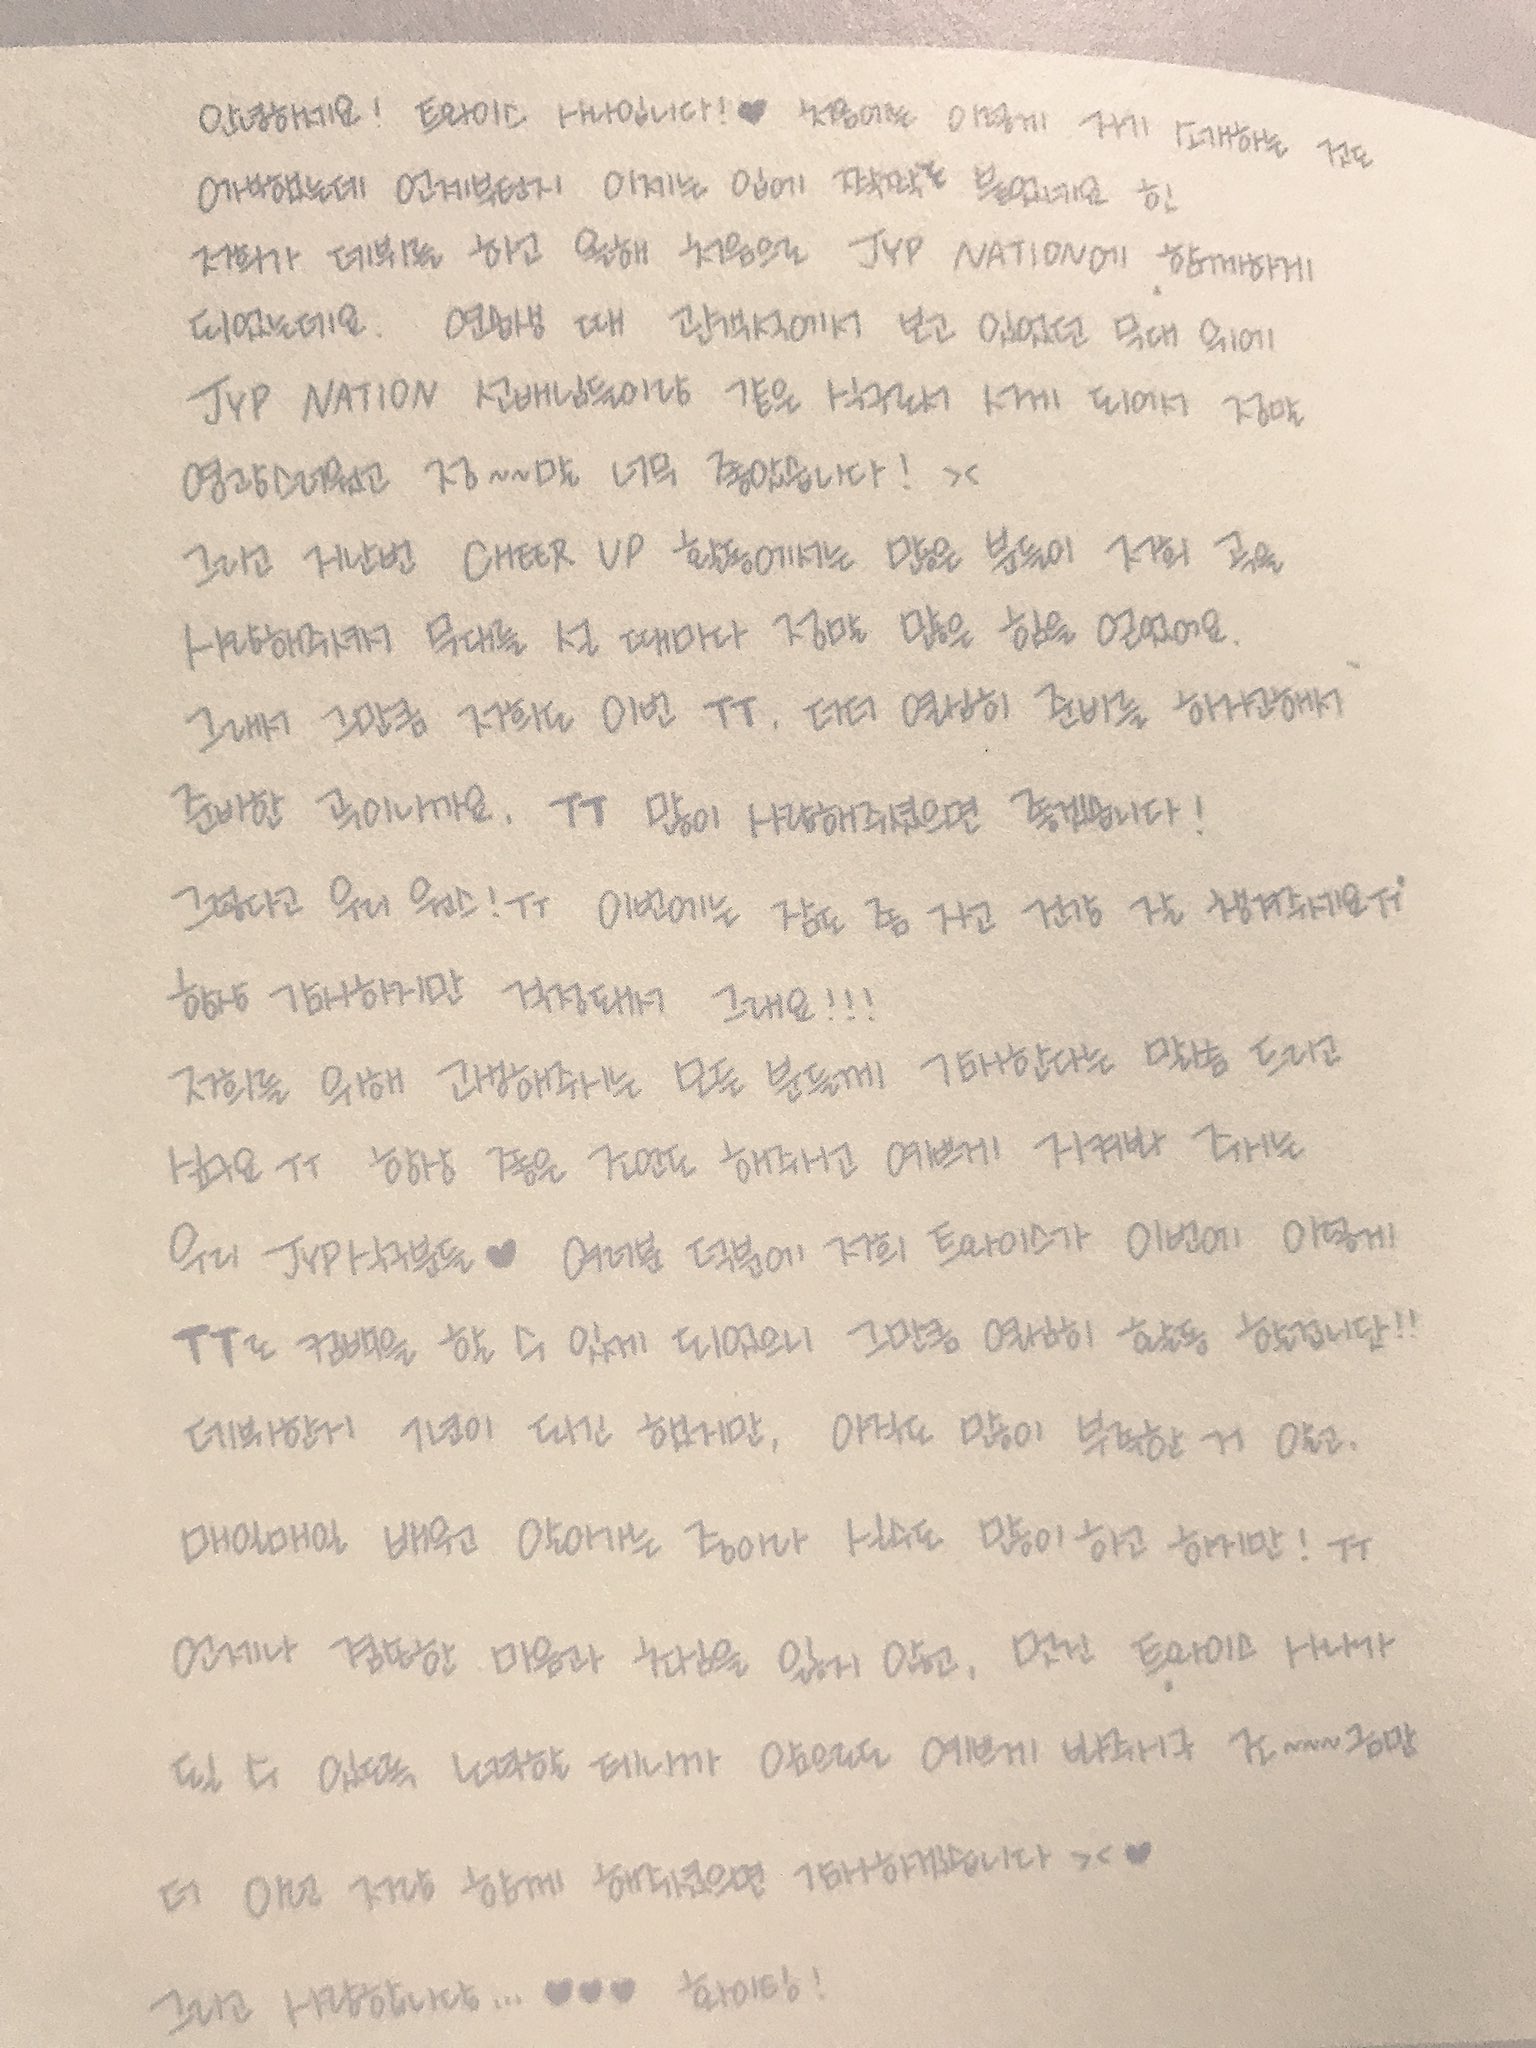 안녕하세요! 트와이스 사나입니다!♥ 처음에는 이렇게 자기 소개하는 것도
어색했는데 언제부턴지 이제는 입에 착착 붙었네요 힛
저희가 데뷔를 하고 올해 처음으로 JYP NATION에 함께하게
되었는데요. 연습생 때 관객석에서 보고 있었던 무대 위에
JYP NATION 선배님들이랑 같은 식구로서 서게 되어서 정말
영광스러웠고 정~~말 너무 좋았습니다! ><
그리고 지난번 CHEER UP 활동에서는 많은 분들이 저희 곡을
사랑해주셔서 무대를 설 때마다 정말 많은 힘을 얻었어요.
그래서 그만큼 저희도 이번 TT. 더더 열심히 준비를 하시간해서
준비한 곡이니까요. TT 많이 사랑해주셨으면 좋겠습니다!
그렇다고 우리 원스!ㅜㅜ 이번에는 잠도 좀 자고 건강 잘 챙겨주세요ㅜㅜ
항상 감사하지만 걱정돼서 그래요!!!
저희를 위해 고생해주시는 모든 분들께 감사한다는 말씀 드리고
싶어요 ㅜㅜ 항상 좋은 조언도 해주시고 예쁘게 지켜봐 주시는
우리 JYP식구분들♥ 여러분 덕분에 저희 트와이스가 이번에 이렇게
TT로 컴백을 할 수 있게 되었으니 그만큼 열심히 활동 할겁니단!!
데뷔한지 1년이 되긴 했지만, 아직도 많이 부족한 거 알고.
매일매일 배우고 알아가는 중이라 실수도 많이 하고 하지만! ㅜㅜ
언제나 겸손한 마음과 초심을 잃지 않고, 멋진 트와이스 사나가
될 수 있도록 노력할 테니까 앞으로도 예쁘게 봐주시구 조~~~금만
더 아니 저랑 함께 해주셨으면 감사하겠습니다 ><♥
그리고 사랑합니당... ♥♥♥ 화이팅!